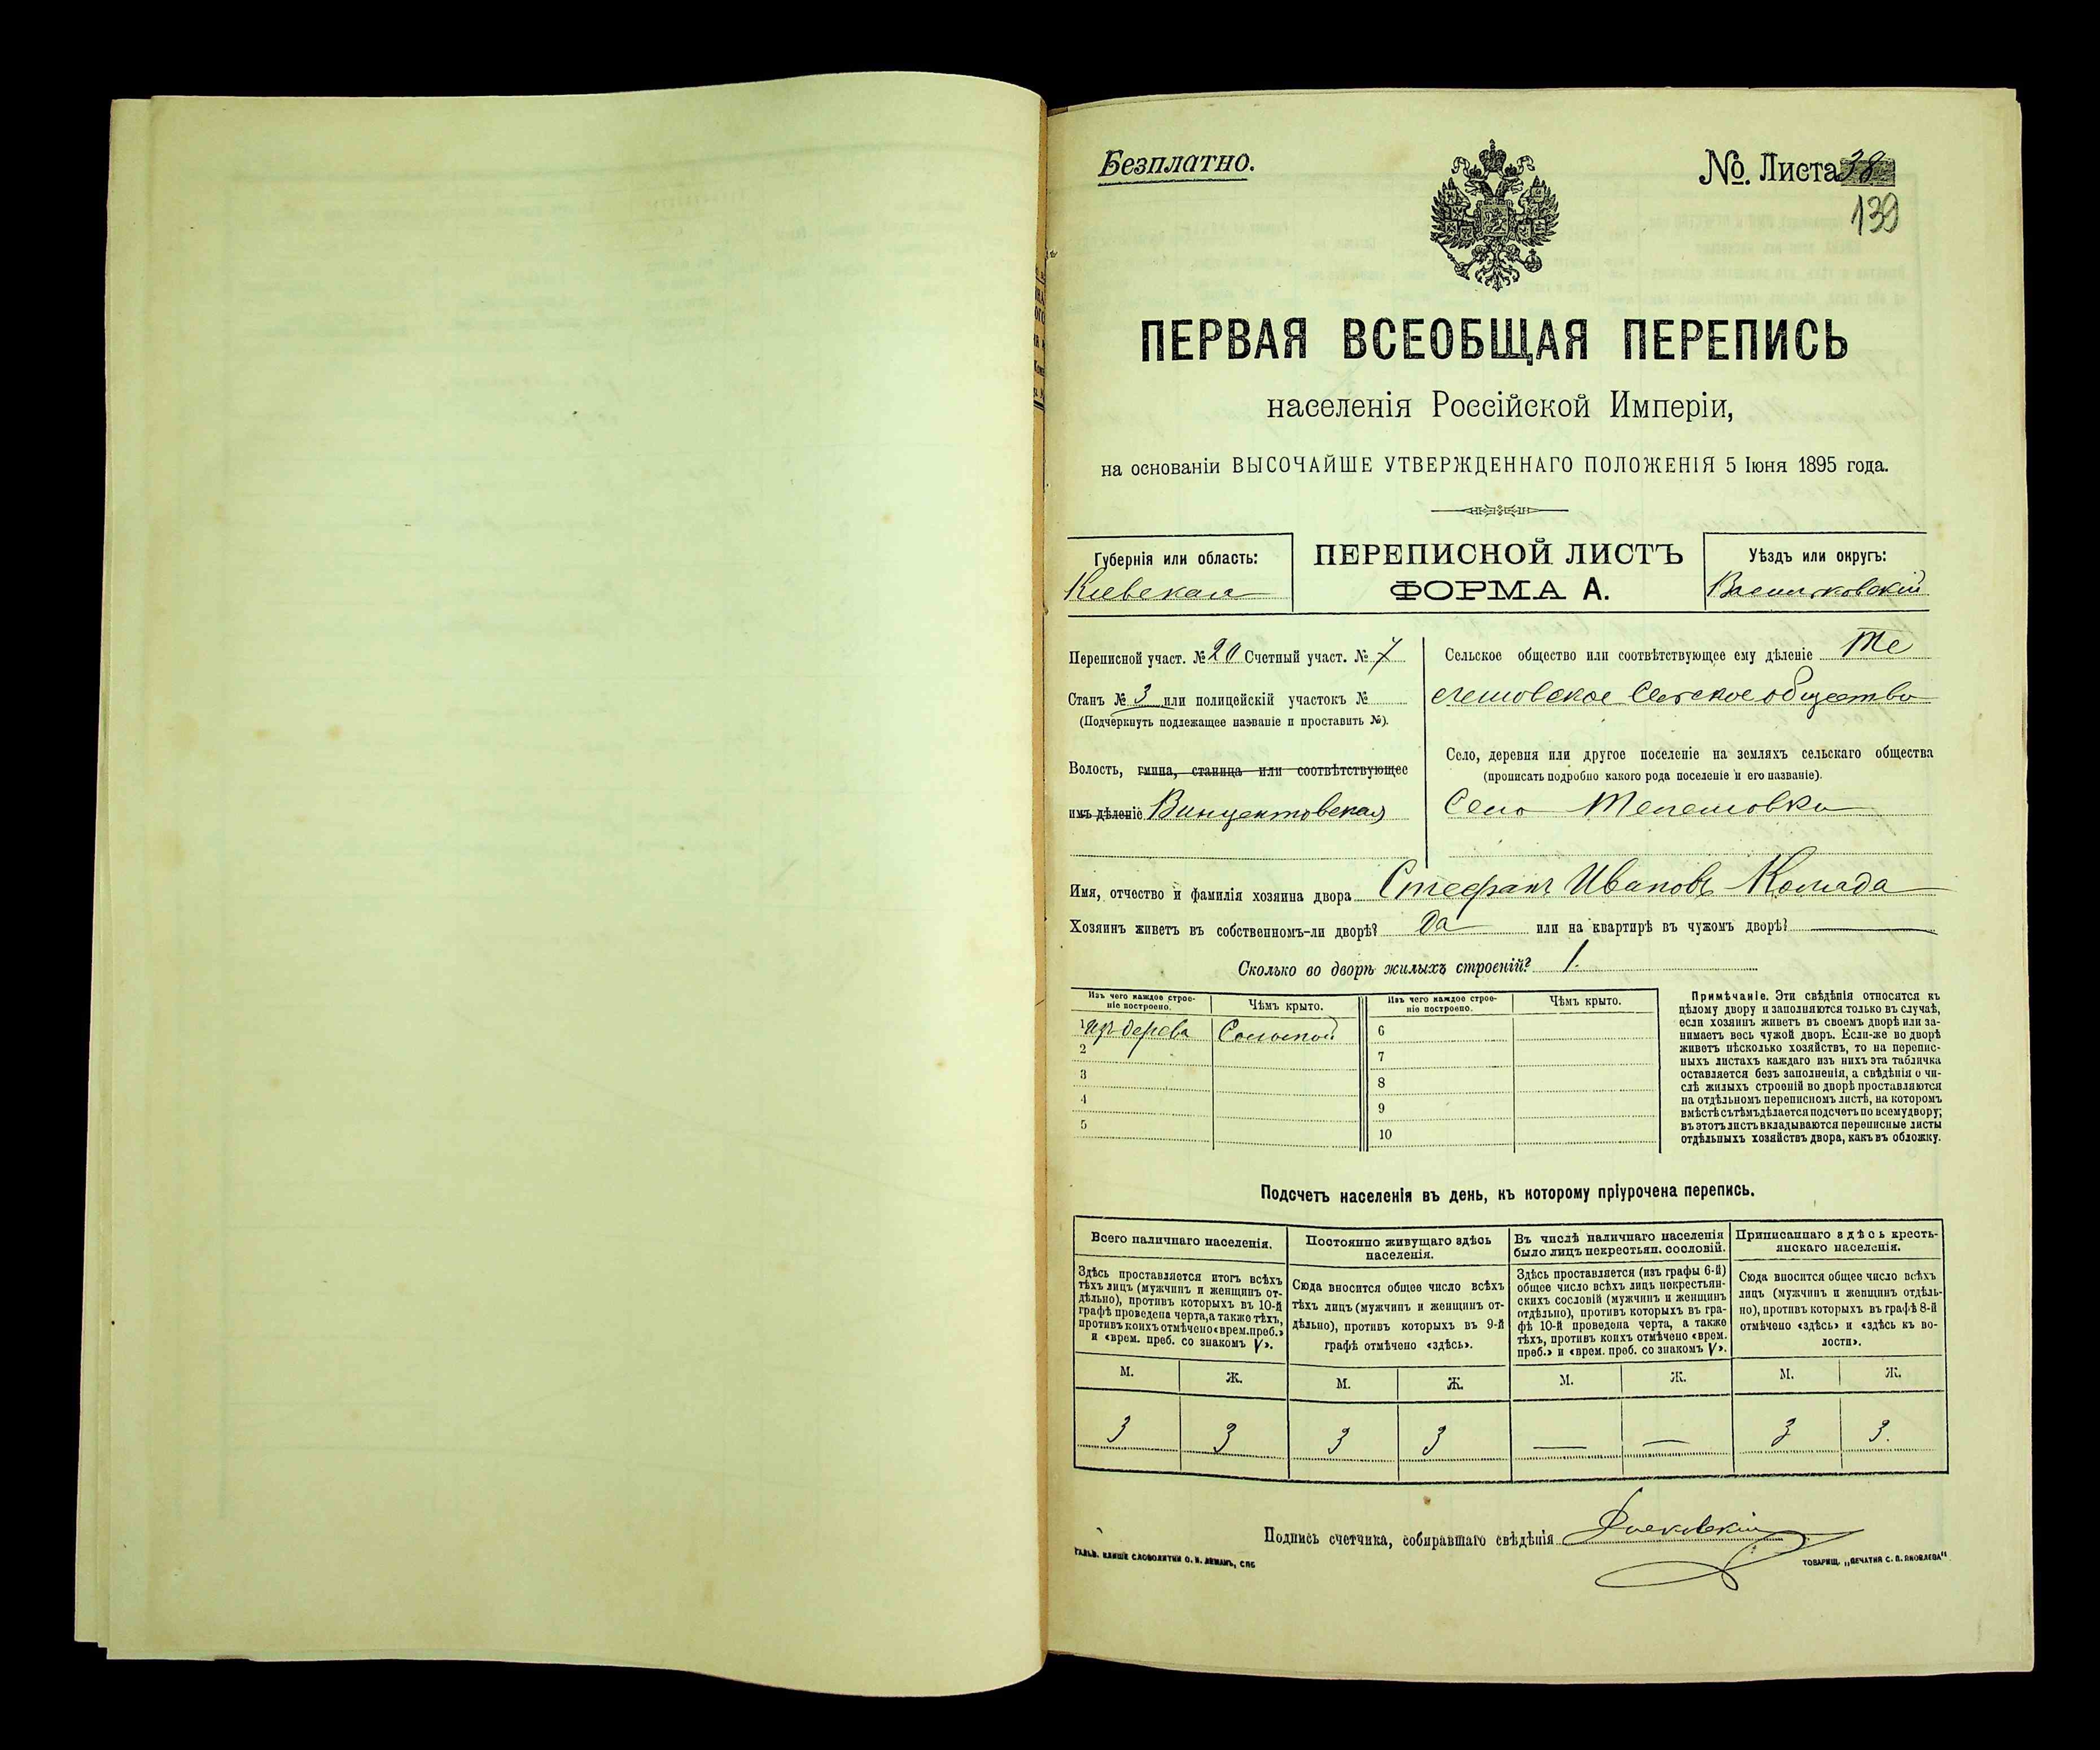 Безплатно.
№ Листа 38
139
ПЕРВАЯ ВСЕОБЩАЯ ПЕРЕПИСЬ
населенія Россійской Имперіи,
на основаніи ВЫСОЧАЙШЕ УТВЕРЖДЕННАГО ПОЛОЖЕНІЯ 5 Іюня 1895 года.
Губернія или область:
Кіевская
ПЕРЕПИСНОЙ ЛИСТЪ
ФОРМА А.
Уѣздъ или округъ:
Васильковскій
Переписной участ. № 20 Счетный участ. № 7
Станъ № 3 или полицейскій участокъ №
(Подчеркнуть подлежащее названіе и проставить №).
Волость, гмина, станица или соотвѣтствующее
имъ дѣленіе Винцентовская
Сельское общество или соотвѣтствующее ему дѣленіе Те
лешовское Сельское общество
Село, деревня или другое поселеніе на земляхъ сельскаго общества
(прописать подробно какого рода поселеніе и его названіе).
Село Телешовка
Имя, отчество и фамилія хозяина двора Стефанъ Ивановъ Комада
Хозяинъ живетъ въ собственномъ-ли дворѣ? Да или на квартирѣ въ чужомъ дворѣ?
Сколько во дворѣ жилыхъ строеній? 1.
Изъ чего каждое строе-
ніе построено.
Чѣмъ крыто.
Изъ чего каждое строе-
ніе построено.
Чѣмъ крыто.
1 изъ дерева Соломой
2
3
4
5
6
7
8
9
10
Примѣчаніе. Эти свѣдѣнія относятся къ
цѣлому двору и заполняются только въ случаѣ,
если хозяинъ живетъ въ своемъ дворѣ или за-
нимаетъ весь чужой дворъ. Если-же во дворѣ
живетъ нѣсколько хозяйствъ, то на перепис-
ныхъ листахъ каждаго изъ нихъ эта табличка
оставляется безъ заполненія, а свѣдѣнія о чи-
слѣ жилыхъ строеній во дворѣ проставляются
на отдѣльномъ переписномъ листѣ, на которомъ
вмѣстѣ съ тѣмъ дѣлается подсчетъ по всему двору;
въ этотъ листъ вкладываются переписные листы
отдѣльныхъ хозяйствъ двора, какъ въ обложку.
Подсчетъ населенія въ день, къ которому пріурочена перепись.
Всего наличнаго населенія.
Здѣсь проставляется итогъ всѣхъ
тѣхъ лицъ (мужчинъ и женщинъ от-
дѣльно), противъ которыхъ въ 10-й
графѣ проведена черта, а также тѣхъ,
противъ коихъ отмѣчено «врем. преб.»
и «врем. преб. со знакомъ V».
Постоянно живущаго здѣсь
населенія.
Сюда вносится общее число всѣхъ
тѣхъ лицъ (мужчинъ и женщинъ от-
дѣльно), противъ которыхъ въ 9-й
графѣ отмѣчено «здѣсь».
Въ числѣ наличнаго населенія
было лицъ некрестьян. сословій.
Здѣсь проставляется (изъ графы 6-й)
общее число всѣхъ лицъ некрестьян-
скихъ сословій (мужчинъ и женщинъ
отдѣльно), противъ которыхъ въ гра-
фѣ 10-й проведена черта, а также
тѣхъ, противъ коихъ отмѣчено «врем.
преб.» и «врем. преб. со знакомъ V».
Приписаннаго здѣсь кресть-
янскаго населенія.
Сюда вносится общее число всѣхъ
лицъ (мужчинъ и женщинъ отдѣль-
но), противъ которыхъ въ графѣ 8-й
отмѣчено «здѣсь» и «здѣсь къ во-
лости».
М. Ж. М. Ж. М. Ж. М. Ж.
3 3 3 3 — — 3 3.
Подпись счетчика, собиравшаго свѣдѣнія
ГАЛЬВ. КЛИШЕ СЛОВОЛИТНИ О. И. ЛЕМАНЪ, СПБ
ТОВАРИЩ. „ПЕЧАТНЯ С. П. ЯКОВЛЕВА“